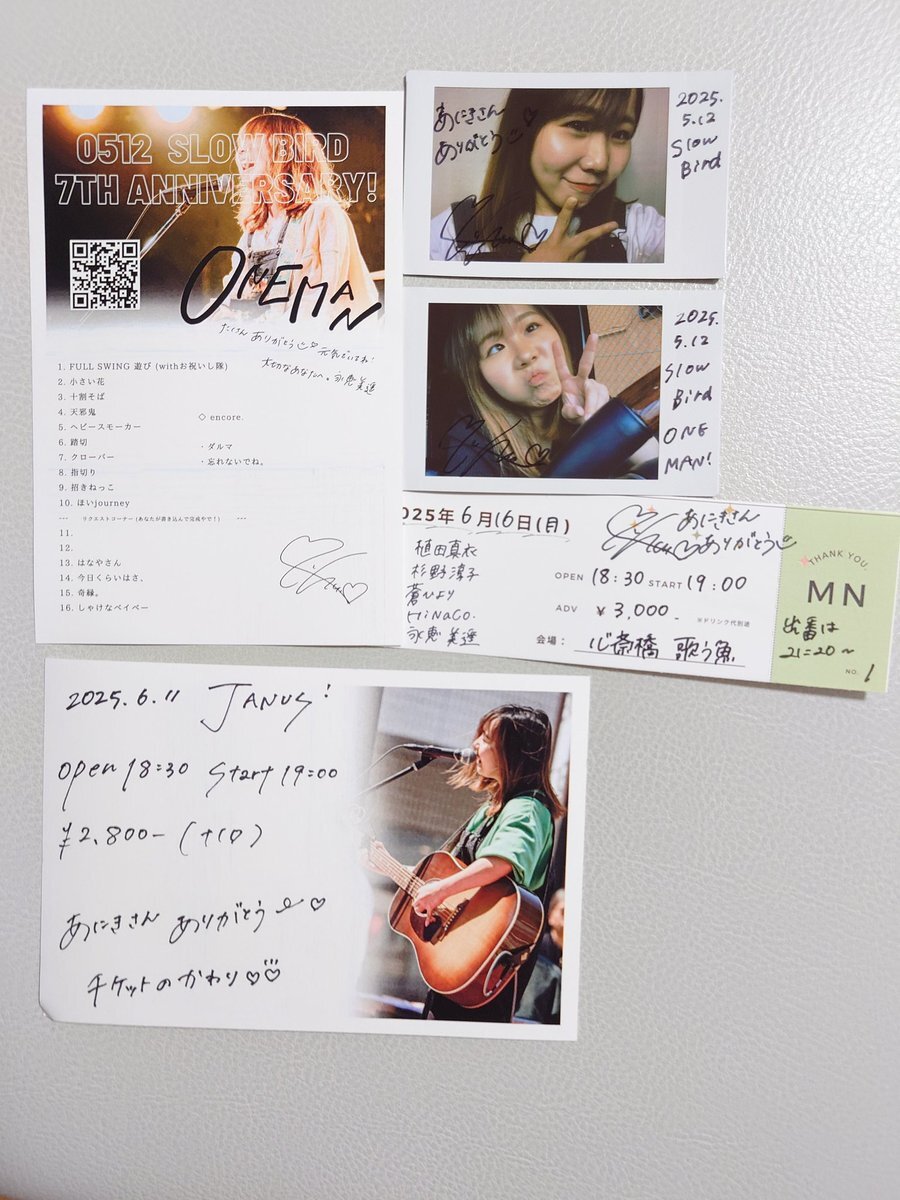 0512 SLOW BIRD
7TH ANNIVERSARY!
ONEMAN
たくさん ありがとう 元気でいてね!
大切なあなたへ。永恵美遥
1. FULL SWING 遊び (withお祝いし隊)
2. 小さい花
3. 十割そば
4. 天邪鬼
5. ヘビースモーカー
6. 踏切
7. クローバー
8. 指切り
9. 招きねっこ
10. ほいjourney
◇ encore.
・ダルマ
・忘れないでね。
--- リクエストコーナー (あなたが書き込んで完成やで!) ---
11.
12.
13. はなやさん
14. 今日くらいはさ、
15. 奇縁。
16. しゃけなベイベー
あにきさん
ありがとう
2025.
5.12
Slow
Bird
2025.
5.12
Slow
Bird
ONE
MAN!
025年6月16日(月)
植田真衣
杉野淳子
蒼ひより
HiNaCo.
永恵美遥
あにきさん
ありがとう
OPEN 18:30 START 19:00
ADV ¥3,000- ※ドリンク代別途
会場: 心斎橋 歌う魚
THANK YOU.
MN
出番は
21:20〜
NO. 1
2025.6.11 JANUS!
open 18:30 start 19:00
¥2,800- (+1D)
あにきさん ありがとう
チケットのかわり